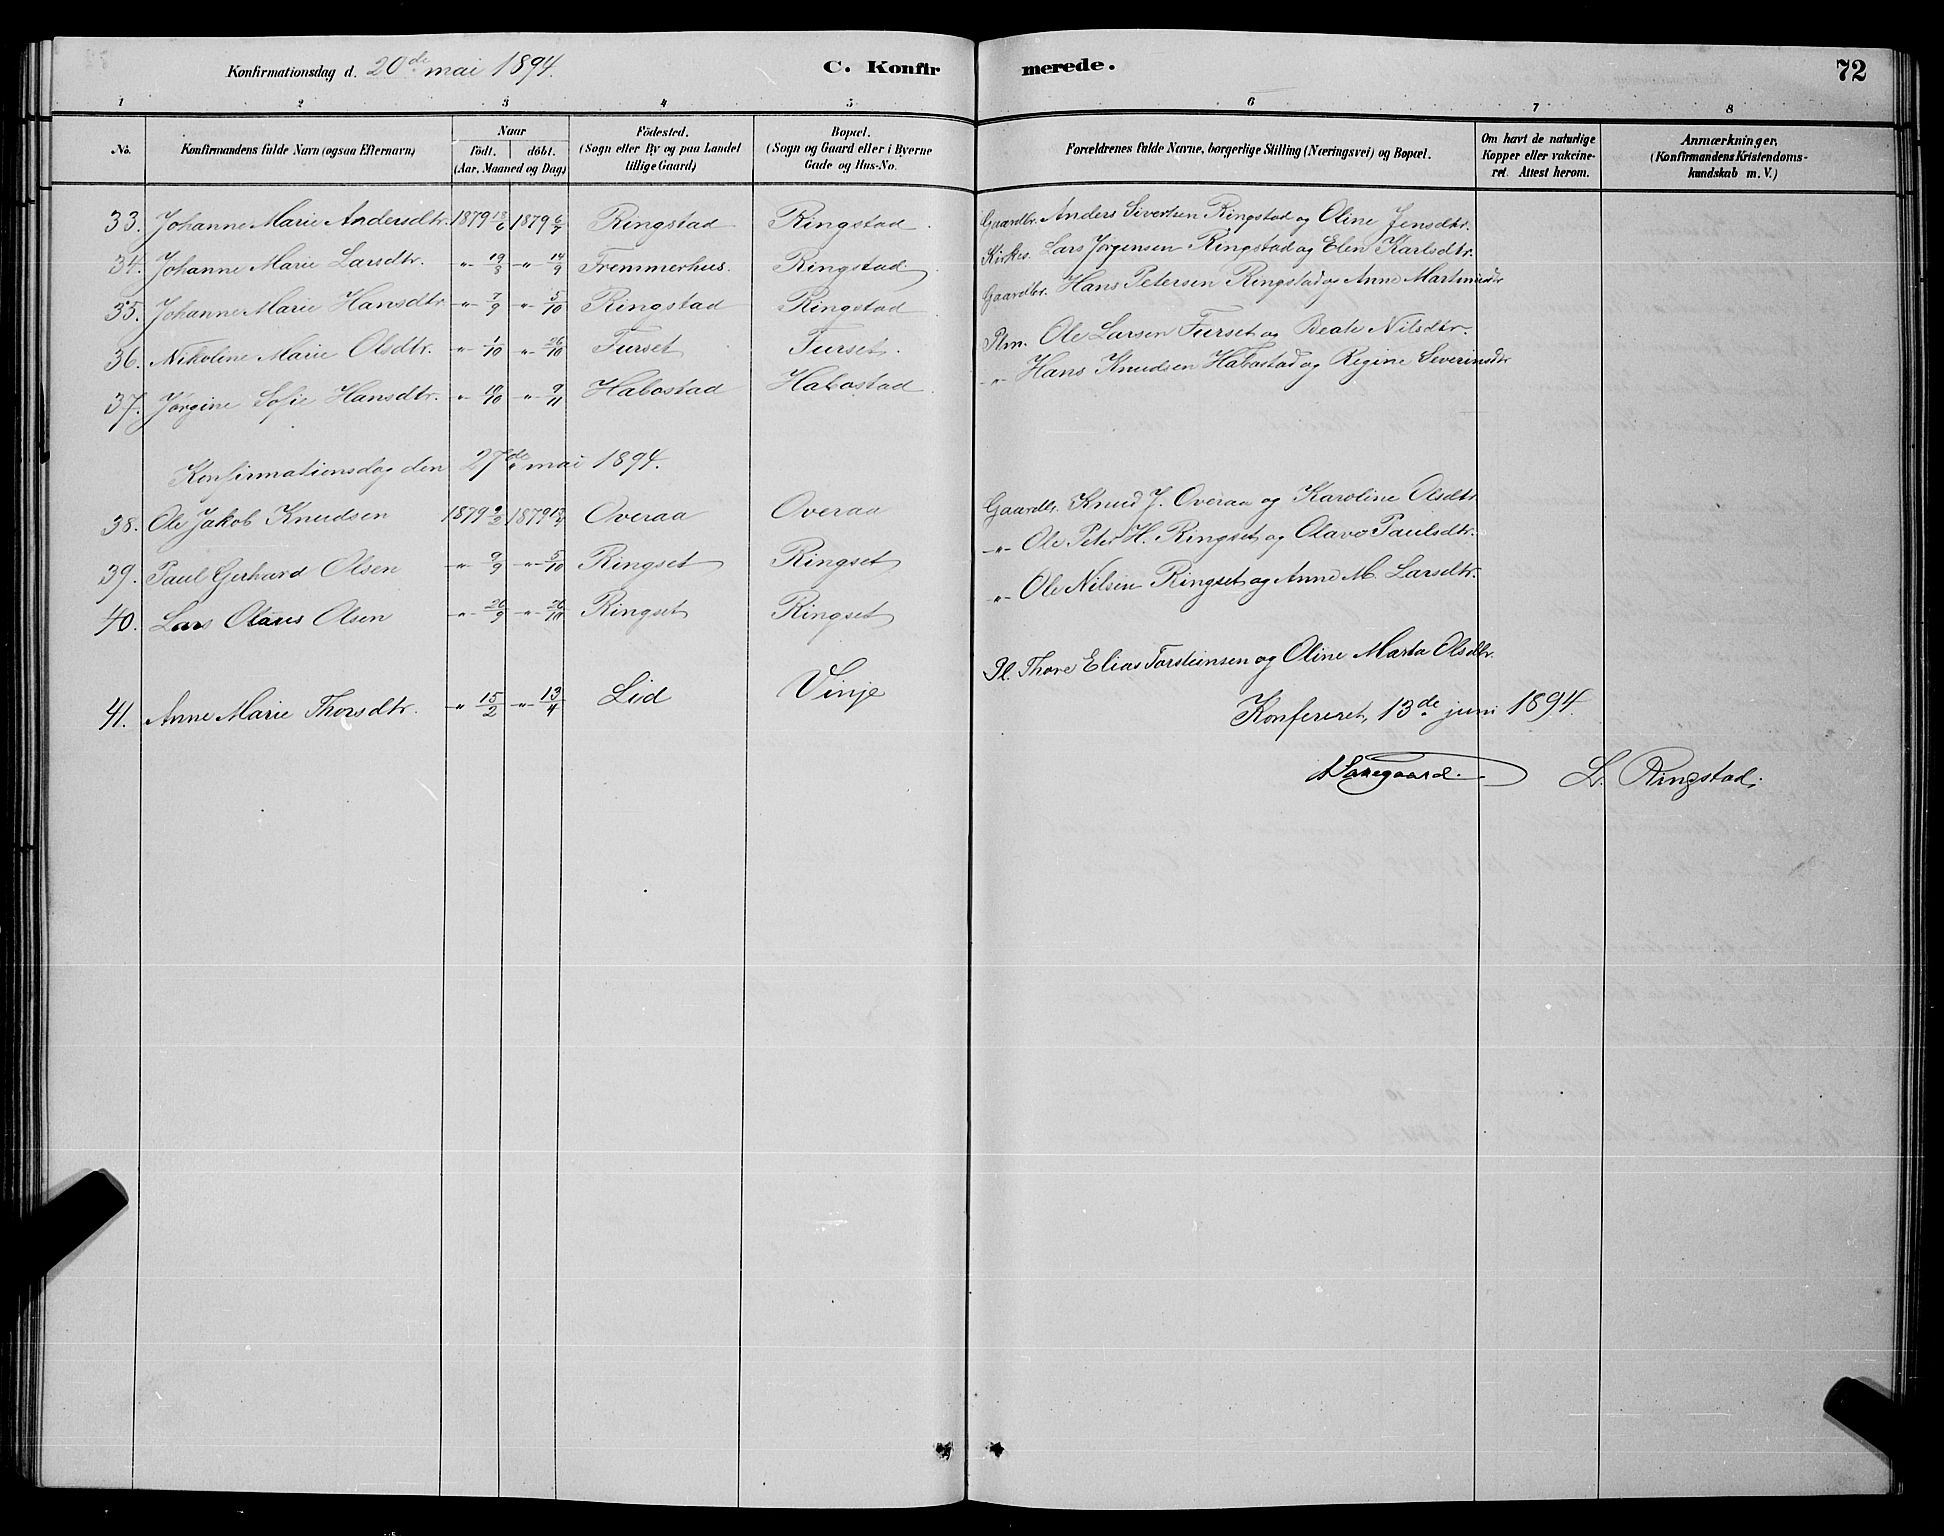 Konfirmationsdag d. 20de mai 1894.
C. Konfirmerede.
72
1 2 3 4 5 6 7 8
No. Konfirmandens fulde Navn (ogsaa Efternavn) Naar Födt. döbt. (Aar, Maaned og Dag) Födested. (Sogn eller By og paa Landet tillige Gaard) Bopæl. (Sogn og Gaard eller i Byerne Gade og Hus-No. Forældrenes fulde Navne, borgerlige Stilling (Næringsvei) og Bopæl. Om havt de naturlige Kopper eller vakcineret. Attest herom. Anmærkninger, (Konfirmandens Kristendomskundskab m. V.)
33. Johanne Marie Andersdtr. 1879 18/6 1879 6/7 Ringstad Ringstad. Gaardbr. Anders Sivertsen Ringstad og Oline Jensdtr.
34. Johanne Marie Larsdtr. -"- 19/8 -"- 14/9 Fremmerhus. Ringstad Kirkes. Lars Jørgensen Ringstad og Elen Karlsdtr.
35. Johanne Marie Hansdtr. -"- 7/9 -"- 5/10 Ringstad Ringstad Gaardbr. Hans Petersen Ringstad og Anne Martinusdtr
36. Nikoline Marie Olsdtr. -"- 1/10 -"- 26/10 Furset Furset. Plm. Ole Larsen Furset og Beate Nilsdtr.
37. Jørgine Sofie Hansdtr. -"- 10/10 -"- 9/11 Habostad Habostad -"- Hans Knudsen Habostad og Regine Severinsdtr
Konfirmationsdag den 27de mai 1894.
38. Ole Jakob Knudsen 1879 1879 Overaa Overaa Gaardbr. Knud J. Overaa og Karoline Olsdtr
39. Paul Gerhard Olsen -"- 9/9 -"- 5/10 Ringset Ringset -"- Ole Peter H. Ringset og Olava Paulsdtr.
40. Lars Olaus Olsen -"- 20/9 -"- 26/10 Ringset Ringset -"- Ole Nilsen Ringset og Anne M. Larsdtr.
41. Anne Marie Thorsdtr. -"- 15/2 -"- 13/4 Lid Vinje Pl. Thore Elias Torsteinsen og Oline Marta Olsdtr.
Konfereret, 13de juni 1894.
L. Ringstad.